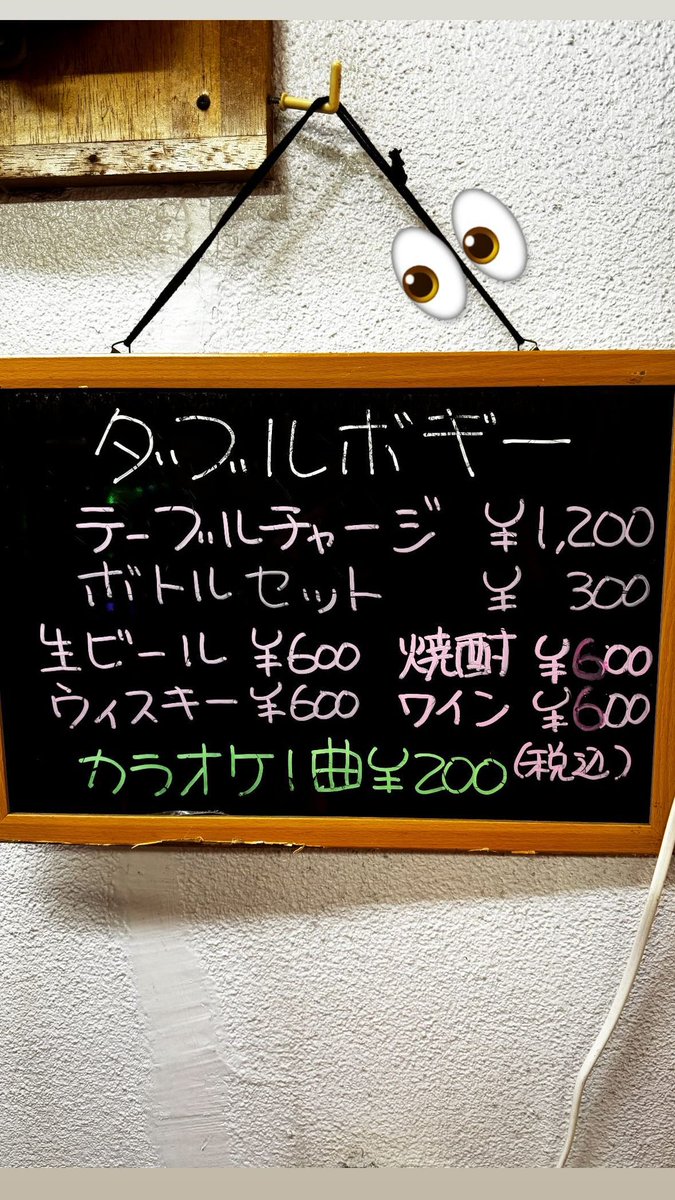 ダブルボギー
テーブルチャージ ¥1,200
ボトルセット ¥ 300
生ビール ¥600 焼酎 ¥600
ウィスキー ¥600 ワイン ¥600
カラオケ1曲¥200(税込)